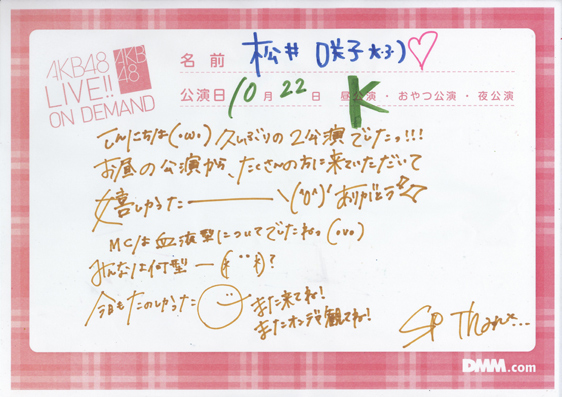 AKB48
LIVE!!
ON DEMAND
AKB
48
名前 松井 咲子
公演日 10月22日 昼公演・おやつ公演・夜公演
K
こんにちは(・ω・) 久しぶりの2公演でしたっ!!!
お昼の公演から、たくさんの方に来ていただいて
嬉しゆるた———\(^o^)/ ありがとう
MCは血液型についてでしたねっ(・v・)
みんなは何型ー
今日もたのしゆるた
また来てね!
またオンデマ観てね!
SP Thanx...
DMM.com